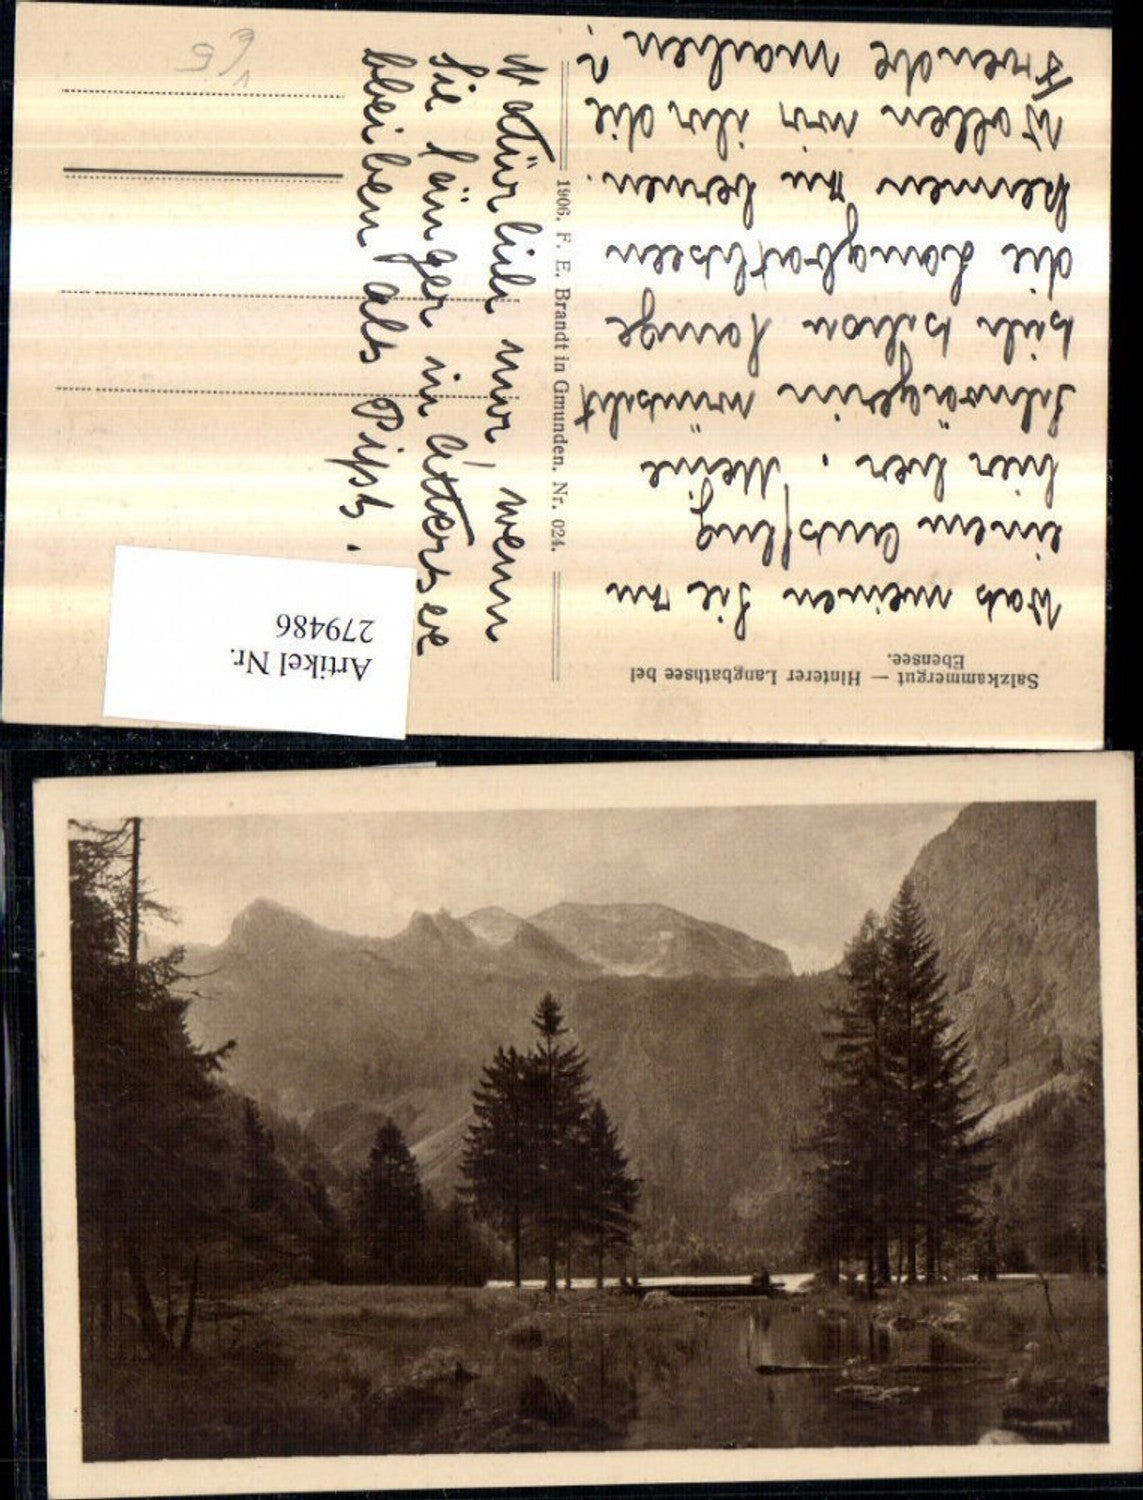 Salzkammergut — Hinterer Langbathsee bei
Ebensee.
Was meinen Sie zu
einem Ausflug
hier her. Meine
Schwägerin wünscht
sich schon lange
die Langbathseen
kennen zu lernen.
Wollen wir ihr die
Freude machen?
1906. F. E. Brandt in Gmunden. Nr. 024.
Natürlich nur, wenn
Sie länger in Attersee
bleiben als Pipsi.
Artikel Nr.
279486